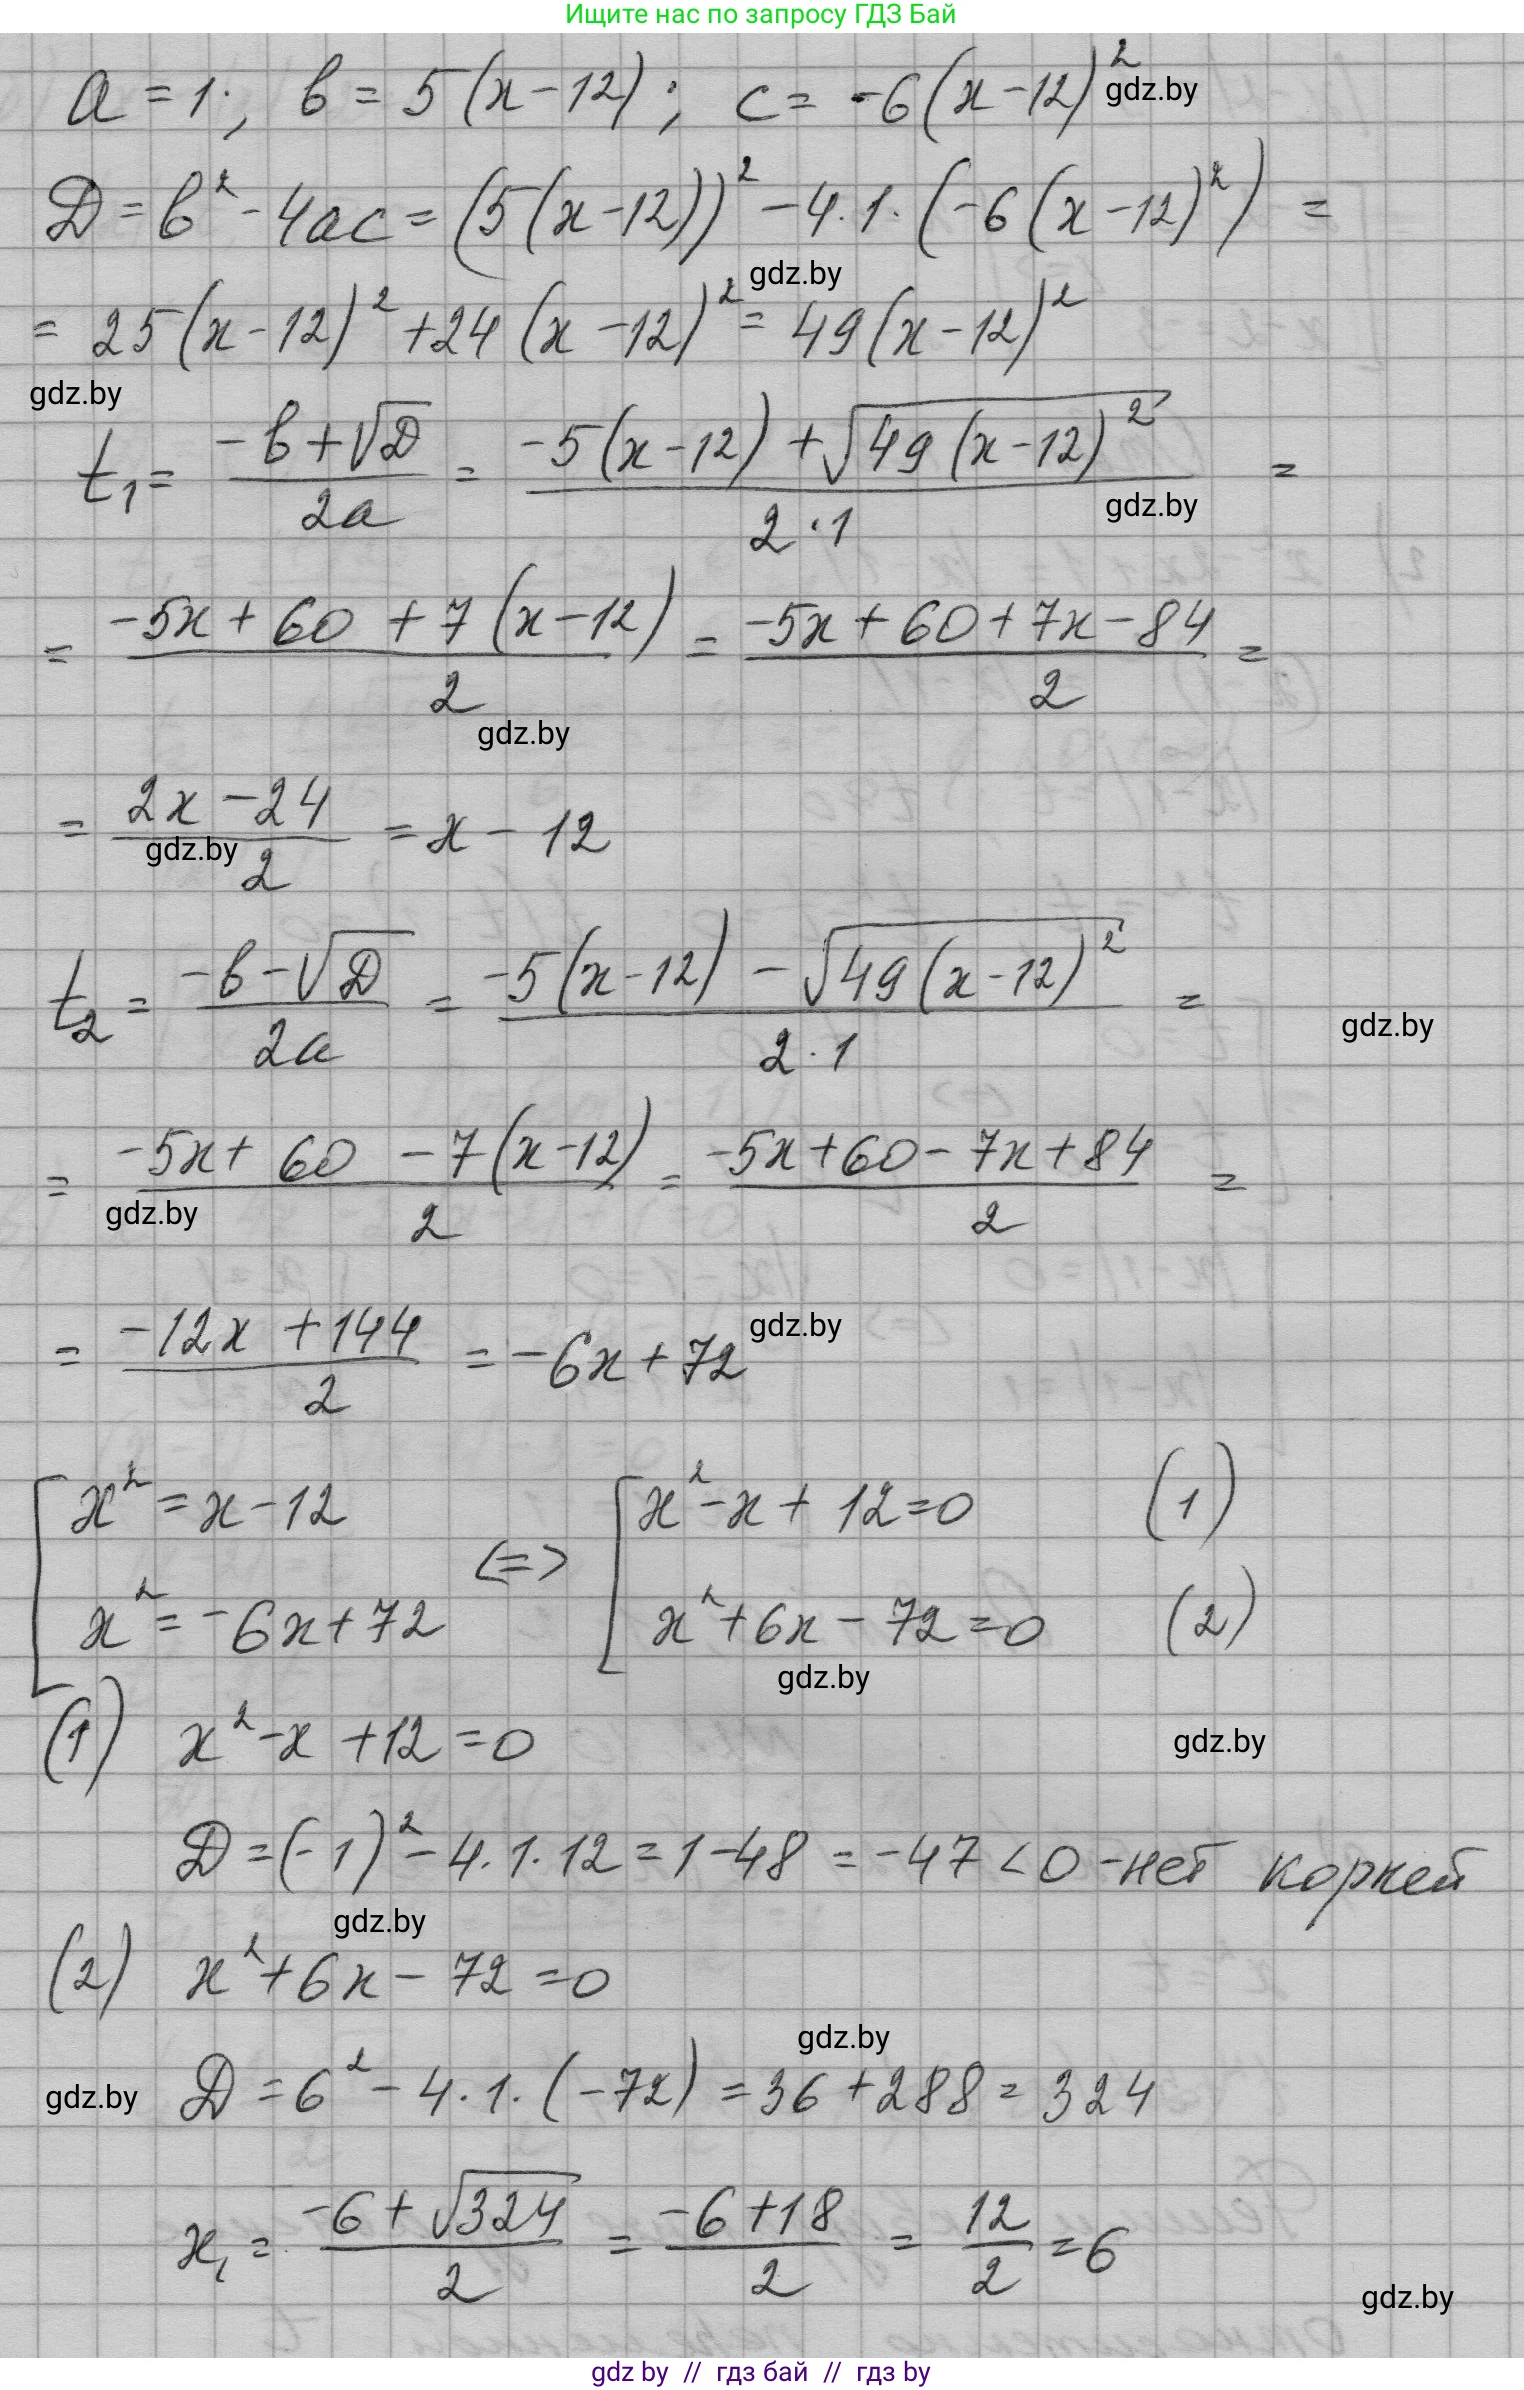 Ищите нас по запросу ГДЗ Бай
a = 1; b = 5(x-12); c = -6(x-12)² gdz.by
D = b² - 4ac = (5(x-12))² - 4·1·(-6(x-12)²) =
gdz.by
= 25(x-12)² + 24(x-12)² = 49(x-12)²
gdz.by
t₁ = (-b+√D)/(2a) = (-5(x-12) + √(49(x-12)²))/(2·1) =
gdz.by
= (-5x + 60 + 7(x-12))/2 = (-5x + 60 + 7x - 84)/2 =
gdz.by
= (2x - 24)/2 = x - 12
gdz.by
t₂ = (-b-√D)/(2a) = (-5(x-12) - √(49(x-12)²))/(2·1) =
gdz.by
= (-5x + 60 - 7(x-12))/2 = (-5x + 60 - 7x + 84)/2 =
gdz.by
= (-12x + 144)/2 = -6x + 72 gdz.by
[ x² = x - 12 <=> [ x² - x + 12 = 0 (1)
x² = -6x + 72 x² + 6x - 72 = 0 (2)
gdz.by
(1) x² - x + 12 = 0 gdz.by
D = (-1)² - 4·1·12 = 1 - 48 = -47 < 0 - нет корней
gdz.by
(2) x² + 6x - 72 = 0
gdz.by
gdz.by D = 6² - 4·1·(-72) = 36 + 288 = 324
x₁ = (-6 + √324)/2 = (-6 + 18)/2 = 12/2 = 6
gdz.by
gdz by // гдз бай // гдз by